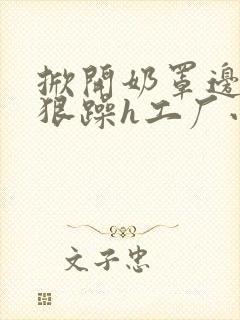 掀開奶罩邊
狠躁h工厂
文子忠